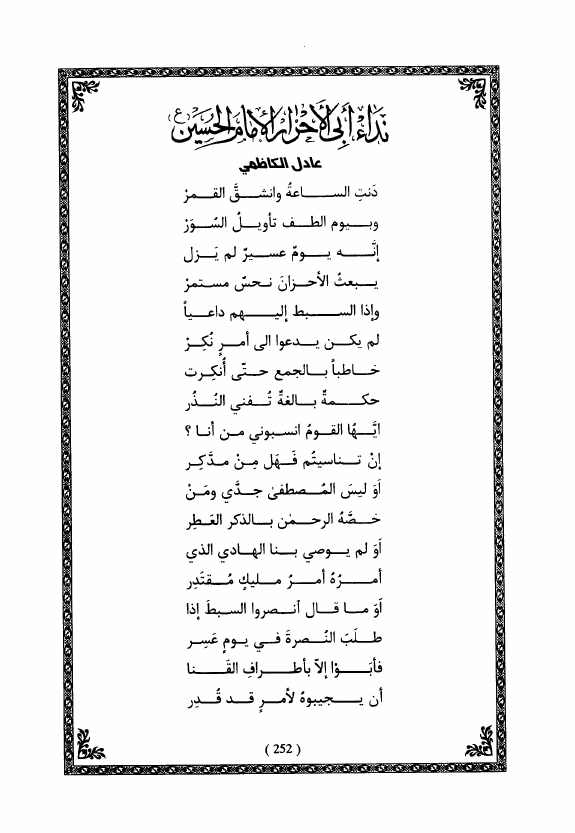 نداء أبي الأحرار الإمام الحسين (ع)
عادل الكاظمي
دَنتِ الساعةُ وانشقَّ القمرْ
وبيوم الطف تأويلُ السُوَرْ
إنَّه يومٌ عسيرٌ لم يَزل
يبعثُ الأحزانَ نحسٌ مستمرْ
وإذا السبط إليهم داعياً
لم يكن يدعوا الى أمرٍ نُكِرْ
خاطباً بالجمع حتّى أُنكِرت
حكمةٌ بالغةٌ تُفني النُذُر
ايَّها القومُ انسبوني من أنا ؟
إنْ تناسيتُم فَهَل مِنْ مدَّكِر
أوَ ليسَ المُصطفىٰ جدَّي ومَنْ
خصَّهُ الرحمٰن بالذكر العَطِر
أوَ لم يوصي بنا الهادي الذي
أمرُهُ أمرُ مليكٍ مُقتَدِر
أوَ ما قال آنصروا السبطَ إذا
طلَبَ النُصرةَ في يومٍ عَسِر
فأبَوْا إلاّ بأطرافِ القَنا
أن يجيبوهُ لأمرٍ قد قُدِر
( 252 )